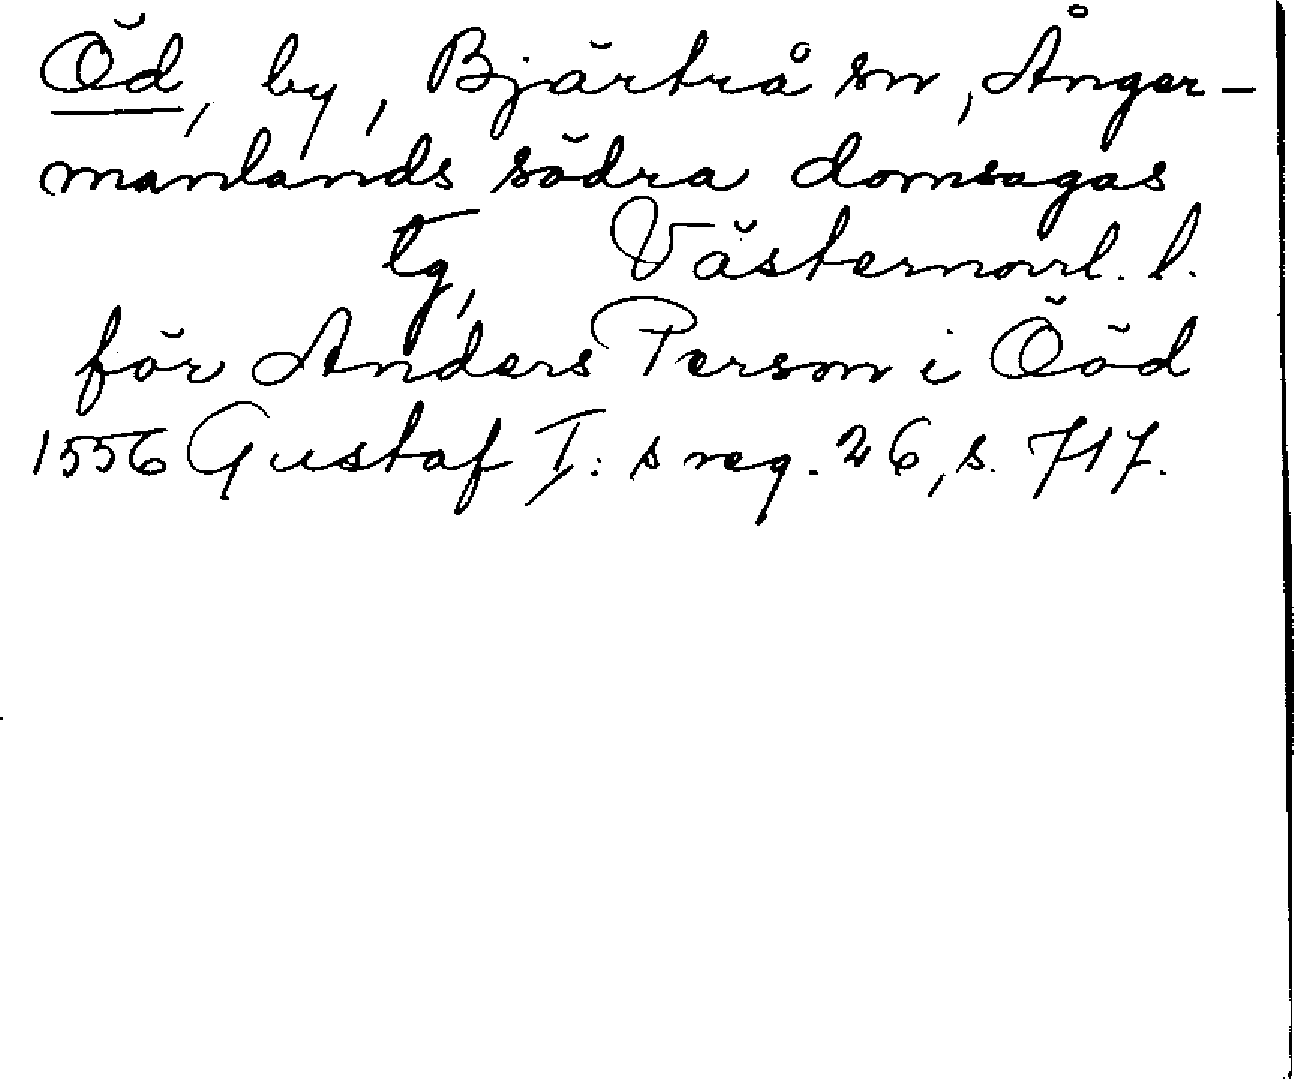 Öd, by, Bjärtrå sn, Ånger-
manlands södra domsagas
tg, Västernorrl. l.
för Anders Person i Ööd
1556 Gustaf I:s reg. 26, s. 717.